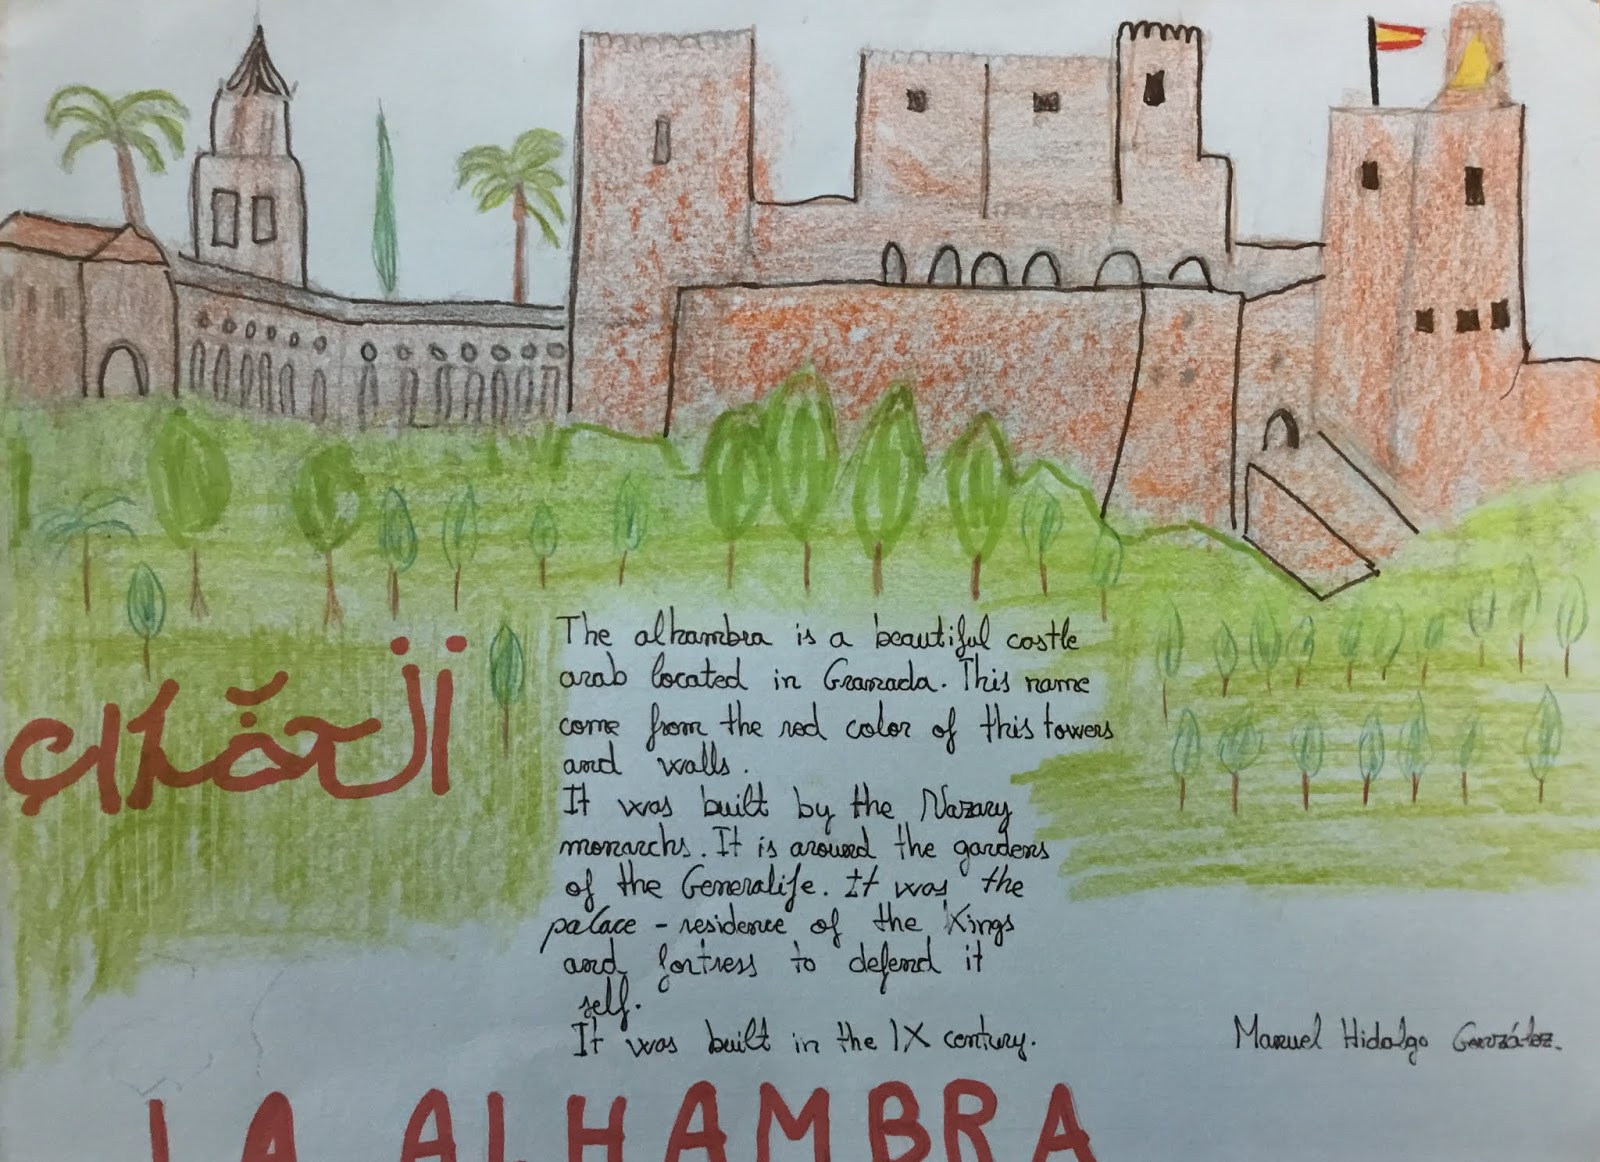 الحمراء
The alhambra is a beautiful castle
arab located in Granada. This name
come from the red color of this towers
and walls.
It was built by the Nazary
monarchs. It is around the gardens
of the Generalife. It was the
palace - residence of the Kings
and fortress to defend it
self.
It was built in the IX century.
Manuel Hidalgo González.
LA ALHAMBRA